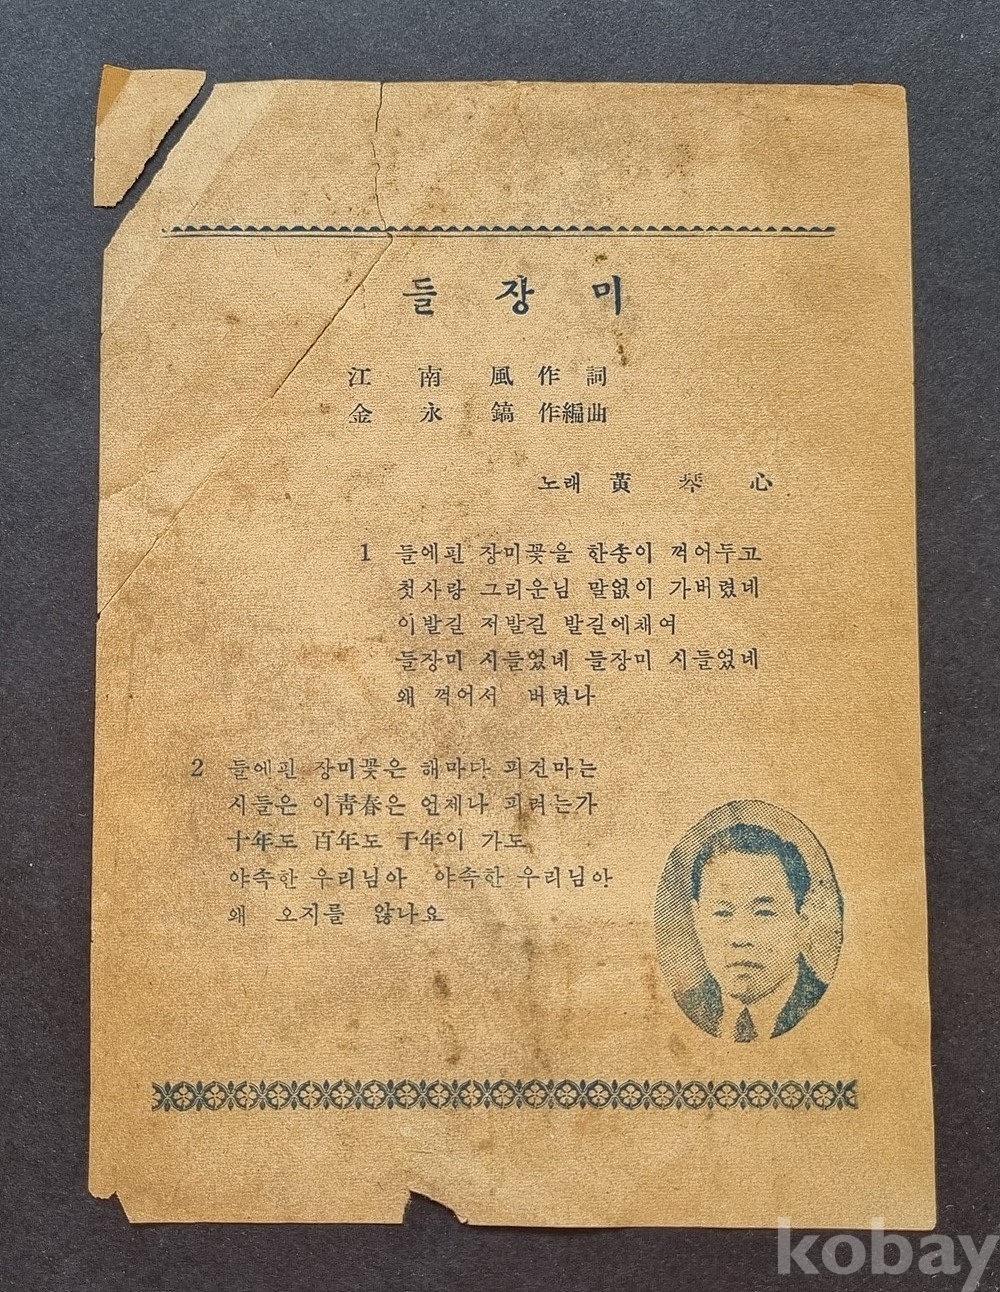 들장미
江南風 作詞
金永鎬 作編曲
노래 黃琴心
1 들에핀 장미꽃을 한송이 꺽어두고
첫사랑 그리운님 말없이 가버렸네
이발길 저발길 발길에채여
들장미 시들었네 들장미 시들었네
왜 꺽어서 버렸나
2 들에핀 장미꽃은 해마다 피건마는
시들은 이靑春은 언제나 피려는가
十年도 百年도 千年이 가도
야속한 우리님아 야속한 우리님아
왜 오지를 않나요
kobay